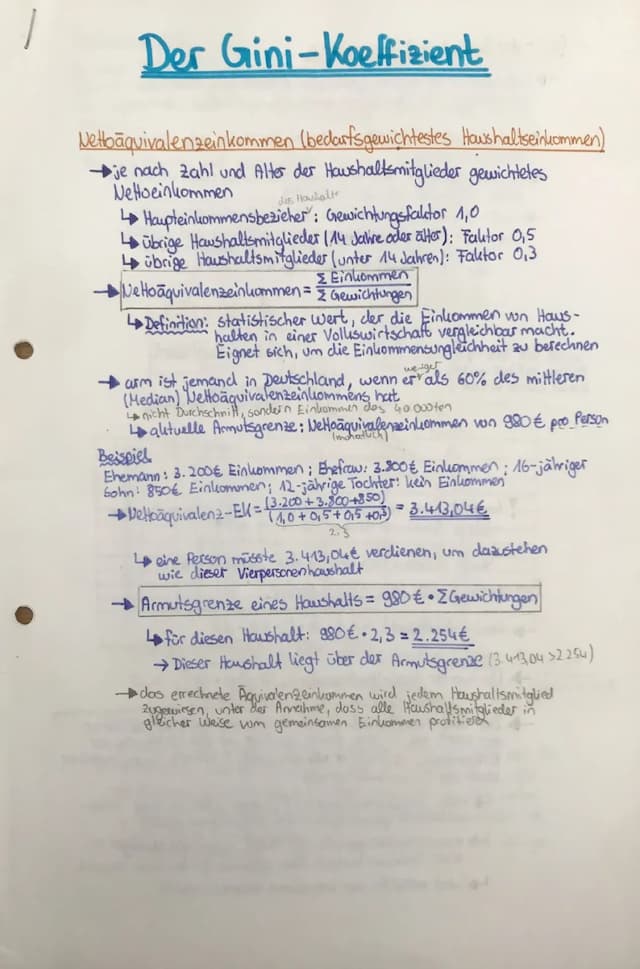 Der Gini-Koeffizient
Nettoäquivalenzeinkommen (bedarfsgewichtestes Haushaltseinkommen)
→ je nach Zahl und Alter der Haushaltsmitglieder gewichtetes
Nettoeinkommen
des Haushalts
↳ Haupteinkommensbezieher: Gewichtungsfaktor 1,0
↳ übrige Haushaltsmitglieder (14 Jahre oder älter): Faktor 0,5
↳ übrige Haushaltsmitglieder (unter 14 Jahren): Faktor 0,3
→ Nettoäquivalenzeinkommen = Σ Einkommen / Σ Gewichtungen
↳ Definition: statistischer Wert, der die Einkommen von Haus-
halten in einer Volkswirtschaft vergleichbar macht.
Eignet sich, um die Einkommensungleichheit zu berechnen
→ arm ist jemand in Deutschland, wenn er weniger als 60% des mittleren
(Median) Nettoäquivalenzeinkommens hat
↳ nicht Durchschnitt, sondern Einkommen des 40 000ten
↳ aktuelle Armutsgrenze: Nettoäquivalenzeinkommen von 980€ pro Person
(monatlich)
Beispiel
Ehemann: 3.200€ Einkommen; Ehefrau: 3.800€ Einkommen; 16-jähriger
Sohn: 850€ Einkommen; 12-jährige Tochter: kein Einkommen
→ Nettoäquivalenz-EK = (3.200 + 3.800 + 850) / (1,0 + 0,5 + 0,5 + 0,3) = 3.413,04€
2,3
↳ eine Person müsste 3.413,04€ verdienen, um dazustehen
wie dieser Vierpersonenhaushalt
→ Armutsgrenze eines Haushalts = 980€ · Σ Gewichtungen
↳ für diesen Haushalt: 980€ · 2,3 = 2.254€
→ Dieser Haushalt liegt über der Armutsgrenze (3.413,04 > 2.254)
→ das errechnete Äquivalenzeinkommen wird jedem Haushaltsmitglied
zugewiesen, unter der Annahme, dass alle Haushaltsmitglieder in
gleicher Weise vom gemeinsamen Einkommen profitieren